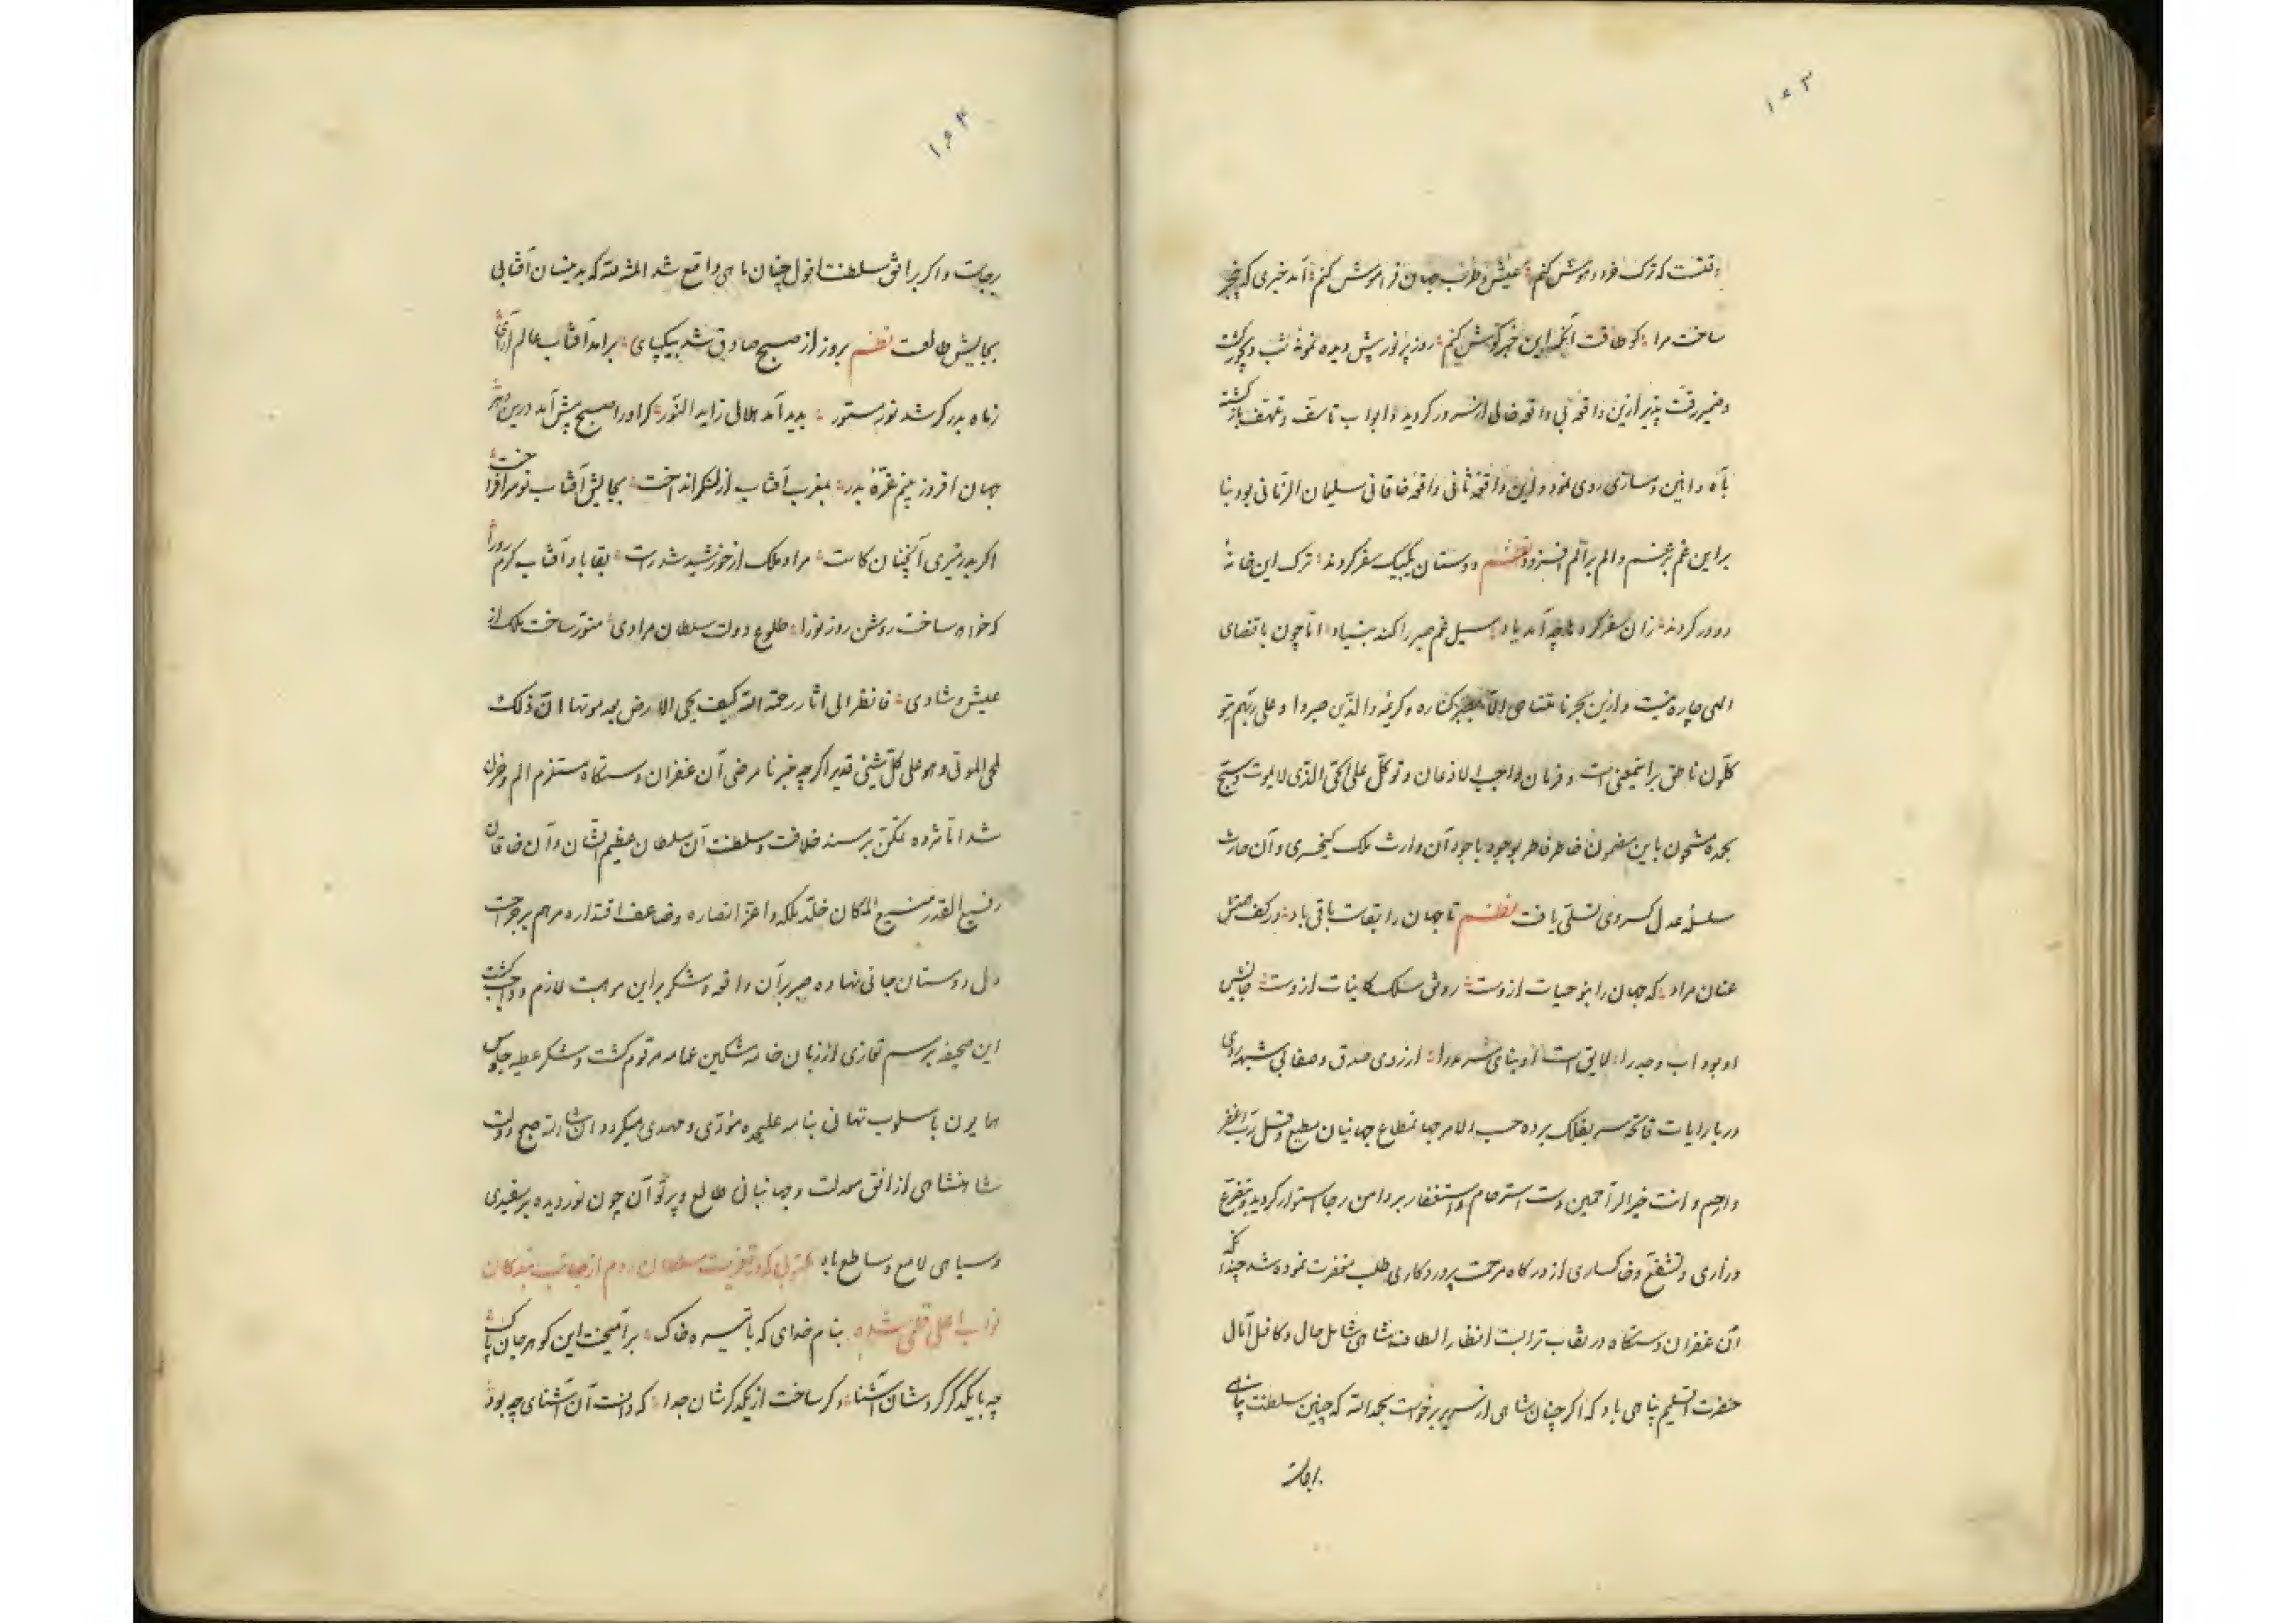 ۱۶۳
وقتست که ترک خرد و هوش کنم عیش و طرب جهان فراموش کنم آمد خبری که بیخبر
ساخت مرا کو طاقت آنکه این خبر گوش کنم روز پر نور پیش دیده نمونهٔ شب دیجور گشت
و ضمیر رقت پذیر ازین واقعه بی واقعه خالی از سرور گردید و ابواب تاسف و تلهف باز گشته
بآه و انین دمسازی روی نمود و ازین واقعهٔ ثانی واقعهٔ خاقانی سلیمان الزمانی بود بنا
براین غم بر غم و الم بر الم افزود نظم دوستان یکبیک سفر کردند ترک این خانهٔ
دو در کردند زان سفر کرده ها چه آمد یاد سیل غم صبر را کند بنیاد اما چون باقتضای
الهی چاره نیست و ازین بحر نامتناهی الا بصبر کناره و کریمه والذین صبروا و علی ربهم یتو
کلون ناطق براینمعنی است و فرمان واجب الاذعان و توکل علی الحی الذی لا یموت و سبح
بحمده مشحون باین مضمون خاطر فاطر بوجود باجود آن وارث ملک کیخسری و آن حارث
سلسلهٔ عدل کسروی تسلی یافت نظم تا جهان را بقاست باقی باد در کف همتش
عنان مراد که جهان را بنو حیات ازوست رونق سلک کاینات ازوست جانشین
او بود اب و جد را لایق است او بنای سرمد را از روی صدق و صفا بی شبهه و ریا
در پا رایات فاتحه سر بفلک برده حسب الامر جهانمطاع جهانیان مطیع و قل رب اغفر
وارحم و انت خیر الراحمین دست استرحام و استغفار بر دامن رجا استوار گردید و بتضرع
و زاری و تشفع و خاکساری از درگاه مرحمت پروردگاری طلب مغفرت نموده شد چندانکه
آن غفران دستگاه در نقاب تراب است انظار الطاف شاهی شامل حال و کافل آمال
حضرت اسلیم پناهی باد که اگر چنان شاهی از سریر برخواست بحمدالله که چنین سلطنت پناهی
برجاست
۱۶۴
برجاست و اگر بر افق سلطنت افول چنان ماهی واقع شد المنة لله که بدینسان آفتابی
بجایش طالعت نظم بروز از صبح صادق شد بیکپای برآمد آفتاب عالم آرای
ز ماه بدر گر شد نور مستور پدید آمد هلال زاید النور گر او را صبح پیش آمد درین دهر
جهان افروز بینم غرهٔ بدر بمغرب آفتاب ار لنگر انداخت بجایش آفتاب نو سرافراخت
اگر بدر منیری آنچنان کاست مراد ملک از خورشید شد راست بقا باد آفتاب گرم رو را
که خواه ساخت روشن روز نو را طلوع دولت سلطان مرادی منور ساخت ملک از
عیش و شادی فانظر الی اثار رحمة الله کیف یحیی الارض بعد موتها ان ذلک
لمحی الموتی و هو علی کل شیء قدیر اگرچه خبر نامرضی آن غفران دستگاه مستلزم الم و حزن
شد اما مژده تمکن بر مسند خلافت و سلطنت آن سلطان عظیم الشان و آن خاقان
رفیع القدر منیع المکان خلد ملکه و اعز انصاره و ضاعف اقتداره مرهم بر جراحت
دل دوستان جانی نهاده صبر بر آن واقعه و شکر بر این موهبت لازم و واجب گشت
این صحیفه برسم تعازی از زبان خامه مشکین عمامه مرقوم گشت و شکر عطیه جلوس
همایون باسلوب تهانی بنامه علیحده مؤدی و مهدی میگردد ان شاء الله صبح دولت
شاهنشاهی از افق معدلت و جهانبانی طالع و پرتو آن چون نور دیده بر سفیدی
و سیاهی لامع و ساطع باد مکتوبی که در تعزیت سلطان روم از جانب بندگان
نواب اعلی قلمی شده بنام خدای که با تیره خاک برآمیخت این گوهر جان پاک
چه با یکدگر کردشان آشنا دگر ساخت از یکدگرشان جدا که دانست آن آشنای چه بود